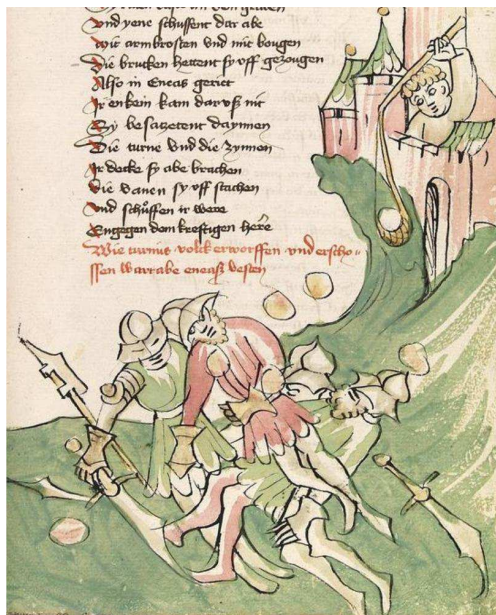 Vnd yene schussent dar abe
Mit armbrosten vnd mit bougen
Die brucken hettent sy vff gezougen
Also in Eneas geriet
Ir enkein kam dar vß nit
Sy besatzetent daynnen
Die turne vnd die zynnen
Ir decke sy abe brachen
Die vanen sy vff stachen
Vnd schůffen ir were
Engegen dem krefftigen here
Wie turnus volck erworffen vnd erscho-
ssen wart abe eneaß vesten